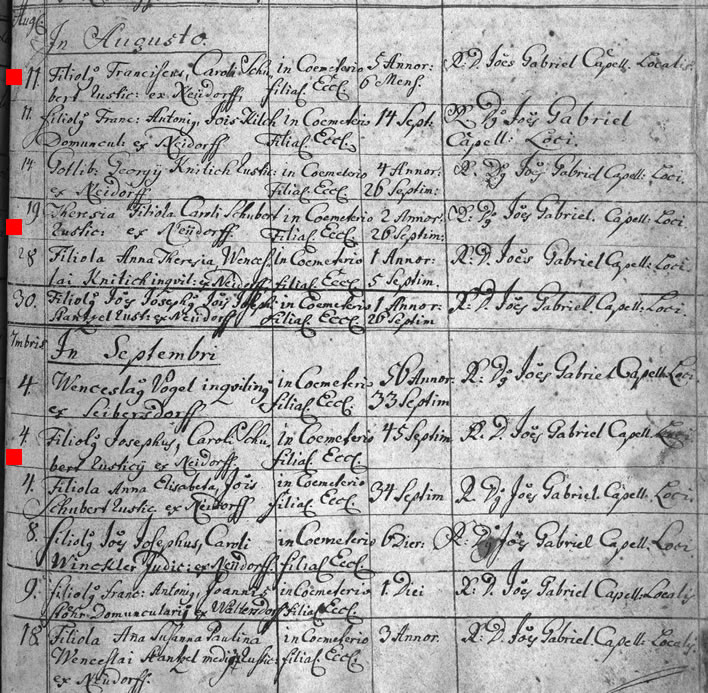 Aug:
In Augusto.
11. Filiolq Franciscus, Caroli Schu in Coemeterio 5 Annor: R: D. Joes Gabriel Capell. Localis.
bert Rustic: ex Neudorff, filial. Eccl. 6 Mens.
11. Filiolq Franc: Antonig, Jois Kilch in Coemeterio 14 Sept: R: Dg Joes Gabriel
Domuncul: ex Neidorff Filial. Eccl. Capell: Loci.
14 Gotlib: Georgy Knilich Rustic: in Coemeterio 4 Annor: R: Dg Joes Gabriel Capell: Loci
ex Neidorff. Filial. Eccl. 26 Septim:
19 Theresia Filiola Caroli Schubert in Coemeterio 2 Annor. R: Dg Joes Gabriel. Capell: Loci
Rustic: ex Neudorff. Filial. Eccl. 26 Septim:
28 Filiola Anna Theresia Wences In Coemeterio 1 Annor: R: D. Joes Gabriel Capell: Loci
lai Knilich ingvil: ex Neidorff filial. Eccl. 5 Septim.
30. Filiolq Jos Josephg Jois Joseph in Coemeterio 1 Annor: R: D. Joes Gabriel Capell: Loci.
Hantzel Rust: ex Neudorff filial. Eccl. 26 Septim
7mbris In Septembri
4. Wenceslaq Vogel inqviling in Coemeterio 56 Annor. R: Dg Joes Gabriel Capell. Loci.
ex Seibersdorff filial. Eccl. 33 Septim
4. Filiolq Josephus, Caroli Schu, in Coemeterio 45 Septim R: D. Joes Gabriel Capell. Loci
bert Rusticy ex Neidorff, filial. Eccl.
4. Filiola Anna Elisabeta, Jois in Coemeterio 34 Septim R: Dg Joes Gabriel. Capell: Loci.
Schubert Rustic. ex Neidorff filial. Eccl.
8. filiolq Joes Josephus, Caroli in Coemeterio 6 Dier: R: Dg Joes Gabriel Capell. Loci
Winckler Judic: ex Neudorff. filial. Eccl.
9. filiolq Franc: Antonig, Joannis in Coemeterio 1. Diei R: D. Joes Gabriel Capell: Localis
Domuncularis ex Waltersdorff filial. Eccl.
18. Filiola Ana Susanna Paulina in Coemeterio 3 Annor. R: D: Joes Gabriel. Capell: Localis.
Wenceslai Hantzel Rustic: filial. Eccl.
ex Neudorff.